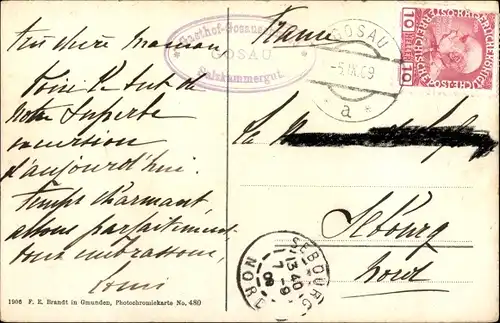 Très chère Maman
Voici le but de
notre superbe
excursion
d'aujourd'hui.
Temps charmant
allons parfaitement,
tous embrassons,
1906 F. E. Brandt in Gmunden, Photochromiekarte No. 489
Gasthof Gosau
GOSAU
Salzkammergut.
France
GOSAU
-5.IX.09
* a *
10 HELLER 10
La
Sebourg
Nord
SEBOURG
13 40
7 - 9
09
NORD